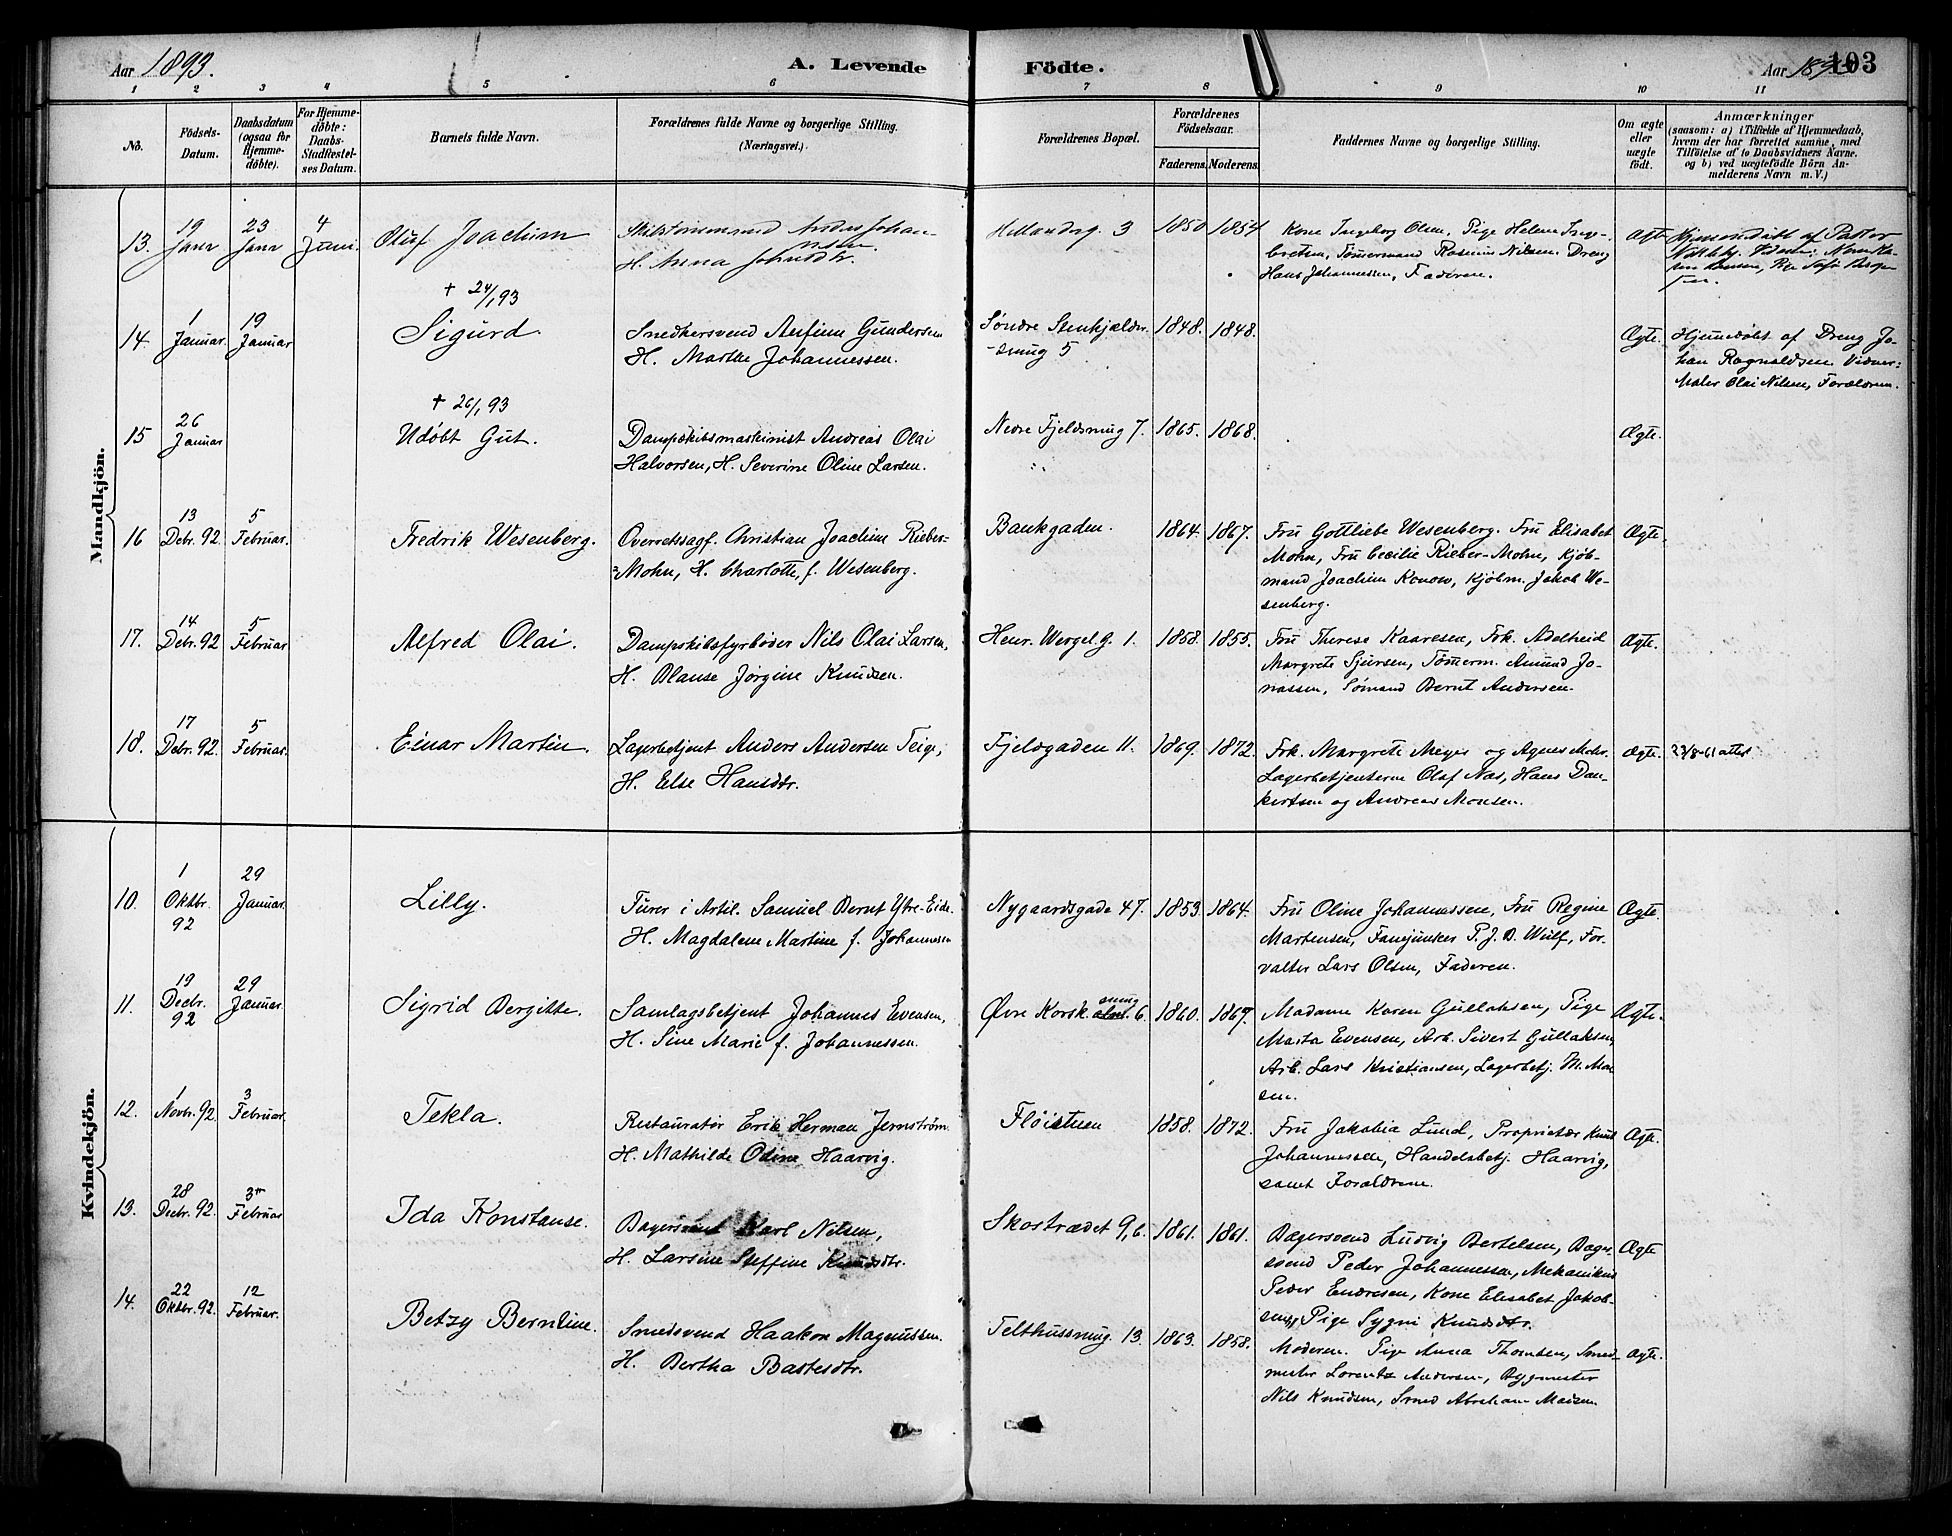 Aar 1893.
A. Levende Födte.
Aar 1893
103
1 2 3 4 5 6 7 8 9 10 11
No.
Födsels-Datum.
Daabsdatum (ogsaa for Hjemmedöbte).
For Hjemmedöbte: Daabs-Stadfestelses Datum.
Barnets fulde Navn.
Forældrenes fulde Navne og borgerlige Stilling. (Næringsvei.)
Forældrenes Bopæl.
Forældrenes Födselsaar.
Faderens. Moderens.
Faddernes Navne og borgerlige Stilling.
Om ægte eller uægte födt.
Anmærkninger (saasom: a) i Tilfælde af Hjemmedaab, hvem der har forrettet samme, med Tilföielse af to Daabsvidners Navne. og b) ved uægtefödte Börn Anmelderens Navn m.V.)
Mandkjön.
13. 19 Janr 23 Janr 4 Juni. Oluf Joachim
H. Anna Johnsdtr.
3 1850 1854
Kone Ingeborg Olsen, Pige Helene Inge-
bretsen, Tømermand Rasmus Nilsen. Dreng
Hans Johannessen, Faderen.
Ægte Hjemmedøbt af Pastor
† 24/1 93
14. 1 Januar. 19 Januar Sigurd.
Snedkersvend Anfinn Gundersen
H. Marthe Johannessen.
Søndre Stenkjælder-
smug 5
1848. 1848.
Ægte. Hjemmedøbt af Dreng Jo-
han Ragnaldsen Vidner:
Maler Olai Nilsen, Forældrene.
† 26/1 93
15 26 Januar Udøbt Gut.
Dampskibsmaskinist Andreas Olai
Halvorsen, H. Severine Oline Larsen.
Nedre Fjeldsmug 7. 1865. 1868. Ægte.
16 13 Debr. 92. 5 Februar. Fredrik Wesenberg.
Overretssagf. Christian Joachim Rieber-
Mohn, H. Charlotte, f. Wesenberg.
Bankgaden. 1864. 1867.
Fru Gottliebe Wesenberg. Fru Elisabet
Mohn, Fru Cecilie Rieber-Mohn, Kjøb-
mand Joachim Konow, Kjøbm. Jakob We-
senberg.
Ægte.
17. 14 Debr. 92 5 Februar Alfred Olai.
Dampskibsfyrbøder Nils Olai Larsen,
H. Blanse Jørgine Knudsen.
Henr. Wergel. G. 1. 1858. 1855.
Fru Therese Kaaresen, Frk. Adelheid
Margrete Sjursen, Tømerm. Amund Jo-
nassen, Sømand Bernt Andersen.
Ægte.
18. 17 Debr. 92. 5 Februar. Einar Martin.
Lagerbetjent Anders Andersen Teige,
H. Else Hansdtr.
Fjeldgaden 11. 1869. 1872.
Frk. Margrete Meyer og Agnes Mohr.
Lagerbetjenterne Olaf Næs, Hans Dan-
kertsen og Andreas Monsen.
Ægte. 23/8-61 attest
Kvindekjön.
10. 1 Oktbr. 92 29 Januar. Lilly.
Furer i Artil. Samuel Bernt Ytre-Eide.
H. Magdalene Martine f. Johannesen
Nygaardsgade 47. 1853. 1864.
Fru Oline Johannessen, Fru Regine
Martensen, Fanejunker P. J. B. Wulf, For-
valter Lars Olsen, Faderen.
Ægte.
11. 19 Decbr. 92 29 Januar. Sigrid Bergitte.
Samlagsbetjent Johannes Evensen,
H. Sine Marie f. Johannessen.
Øvre Korsk. smug 6. 1860. 1867.
Madame Karen Gullaksen, Pige
Marta Evensen, Arb. Sivert Gullaksen
Arb. Lars Kristiansen, Lagerbetj. M. Mon-
sen.
Ægte.
12. 1 Novbr. 92. 3 Februar. Tekla.
Restauratør Erik Herman Jernstrøm
H. Mathilde Odine Haarvig.
Fløistuen 1858. 1872.
Fru Jakobia Lund, Proprietær Knut
Johannessen, Handelsbetj. Haarvig,
samt Forældrene.
Ægte.
13. 28 Decbr. 92. 3 Februar Ida Konstanse.
Bagersvend Karl Nilsen,
H. Larsine Steffine Knudsdtr.
Skostrædet 9, 6. 1861. 1861.
Bagersvend Ludvig Bertelsen, Bager-
svend Peder Johannessen, Mekanikus
Peder Endresen, Kone Elisabet Jakob-
sen, Pige Sygni Knudsdtr.
Ægte
14. 22 Oktbr. 92. 12 Februar. Betzy Berntine.
Smedsvend Haakon Magnussen.
H. Bertha Bastesdtr.
Telthussmug. 13. 1863. 1858.
Moderen. Pige Anna Thomsen, Smed-
mester Lorentz Andersen, Bygmester
Nils Knudsen, Smed Abraham Madsen
Ægte.